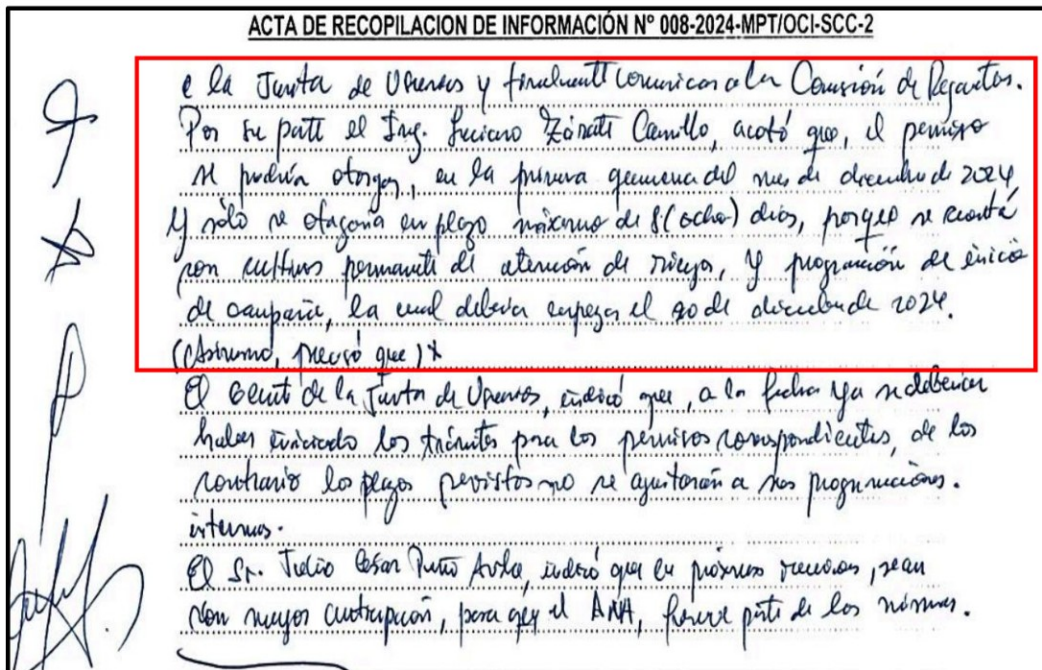 ACTA DE RECOPILACION DE INFORMACIÓN N° 008-2024-MPT/OCI-SCC-2
e la Junta de Usuarios y finalmente comunicar a la Comisión de Regantes.
Por su parte el Ing. Luciano Zárate Carrillo, acotó que, el permiso
se podría otorgar, en la primera quincena del mes de diciembre de 2024
y sólo se otorgaría un plazo máximo de 8 (ocho) días, porque se cuenta
con cultivos permanente de atención de riego, y programación de inicio
de campaña, la cual debería empezar el 20 de diciembre de 2024.
(Asimismo, precisó que) *
El Gerente de la Junta de Usuarios, indicó que, a la fecha ya se deberían
haber iniciado los trámites para los permisos correspondientes, de los
contrario los plazos previstos no se ajustarán a sus programaciones.
internas.
El Sr. Julio César indicó que en próximas reuniones, sean
con mayor anticipación, para que el ANA, forme parte de los mismos.